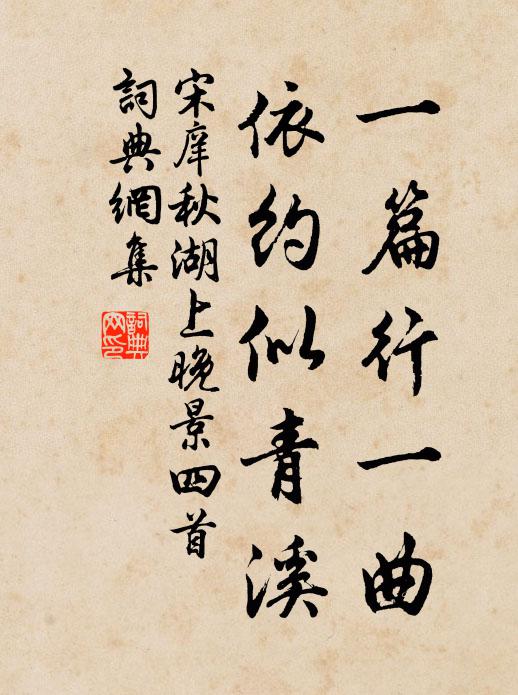 一篇行一曲
依约似青溪
宋庠秋湖上晚景四首
詞典網集
詞典
网印